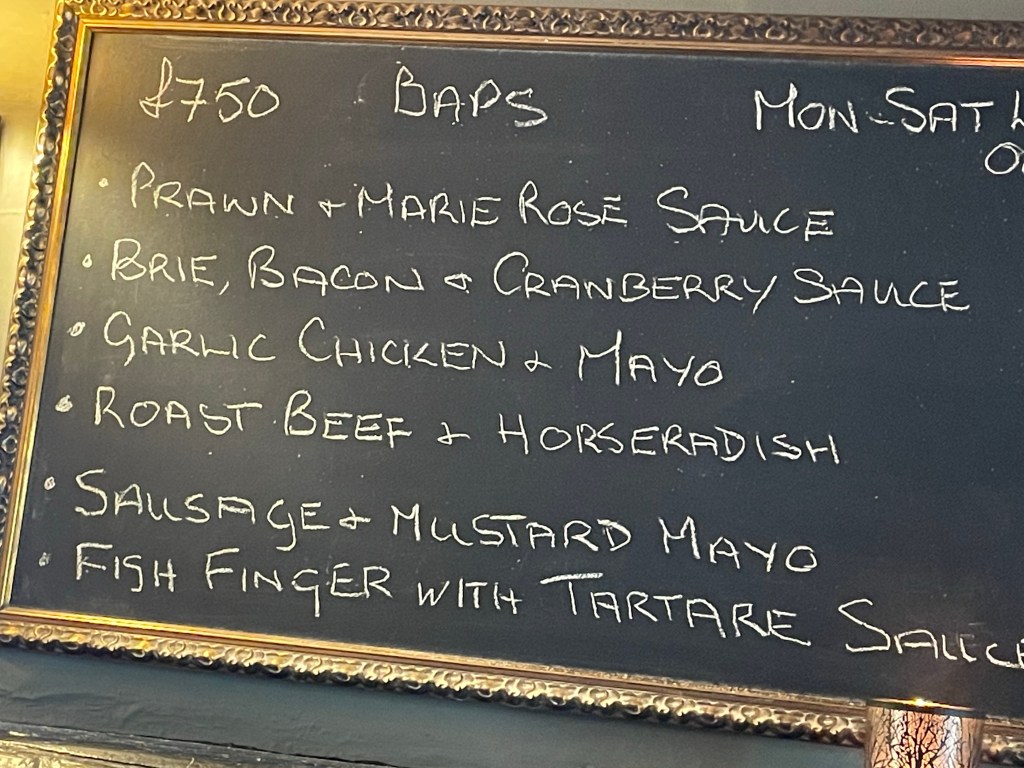 £750 BAPS MON-SAT
• PRAWN & MARIE ROSE SAUCE
• BRIE, BACON & CRANBERRY SAUCE
• GARLIC CHICKEN & MAYO
• ROAST BEEF & HORSERADISH
• SAUSAGE & MUSTARD MAYO
• FISH FINGER WITH TARTARE SAUCE